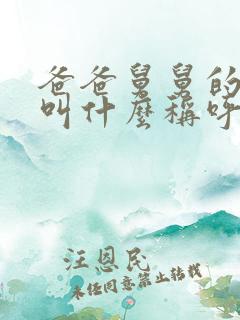 爸爸舅舅的
叫什麼稱呼
汪恩民
未经同意禁止转载